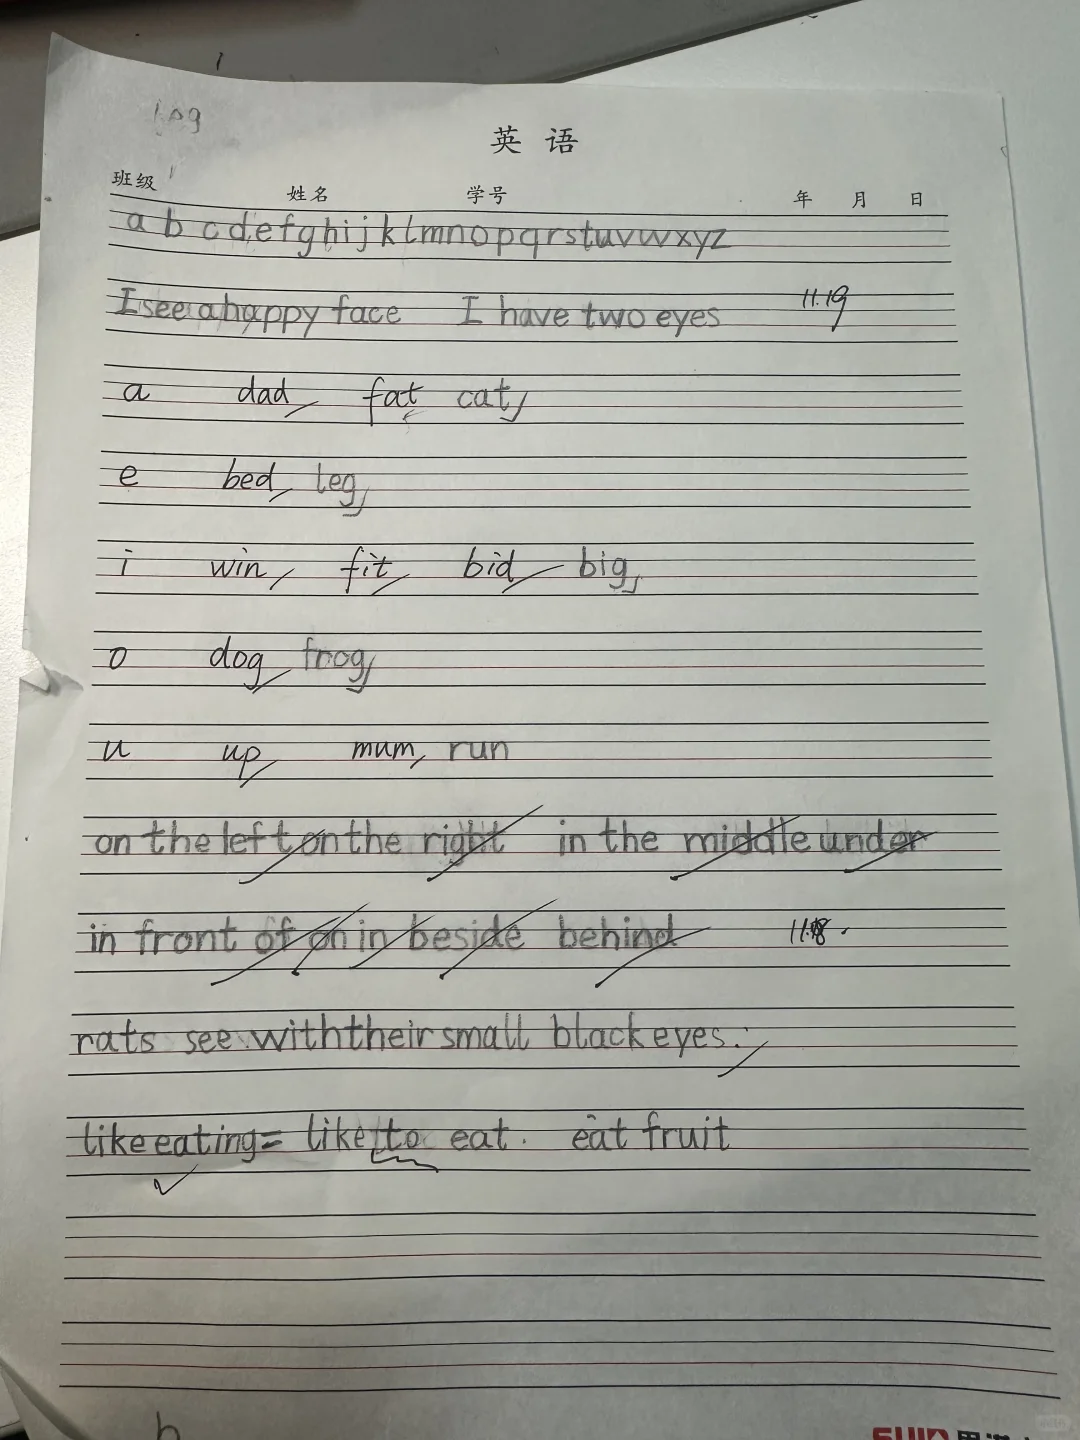 英 语
班级 姓名 学号 年 月 日
a b c d e f g h i j k l m n o p q r s t u v w x y z
I see a happy face I have two eyes 11.19
a dad fat cat
e bed leg
i win fit bid big
o dog frog
u up mum run
on the left on the right in the middle under
in front of on in beside behind 11.18.
rats see with their small black eyes.
like eating = like to eat. eat fruit
b